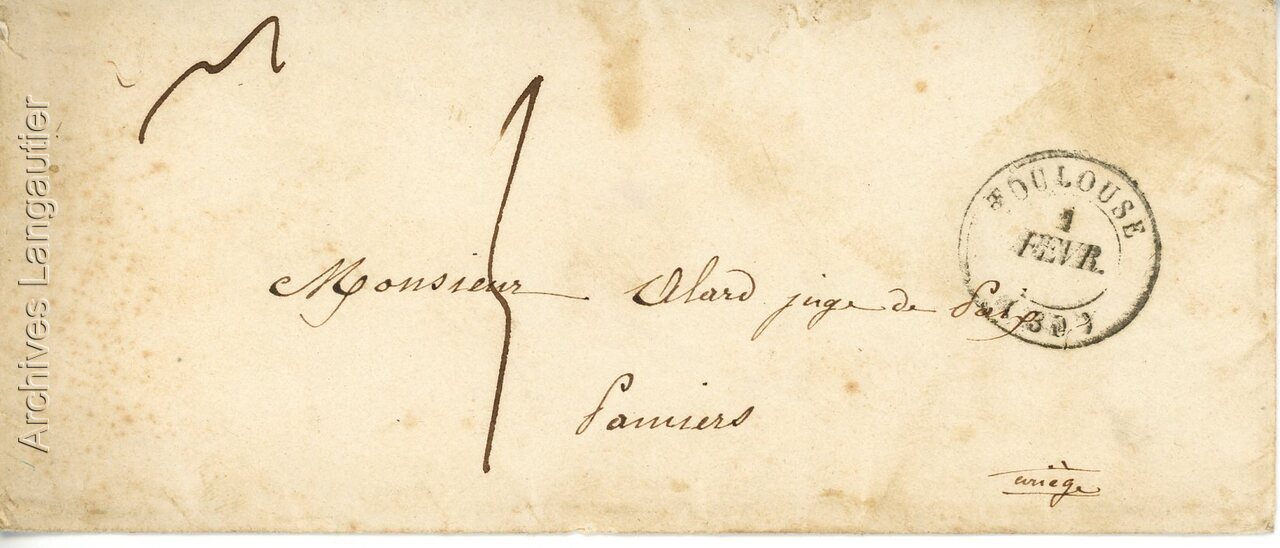 Archives Langautier
TOULOUSE
1
FEVR.
Monsieur Alard juge de Paix
Pamiers
ariège